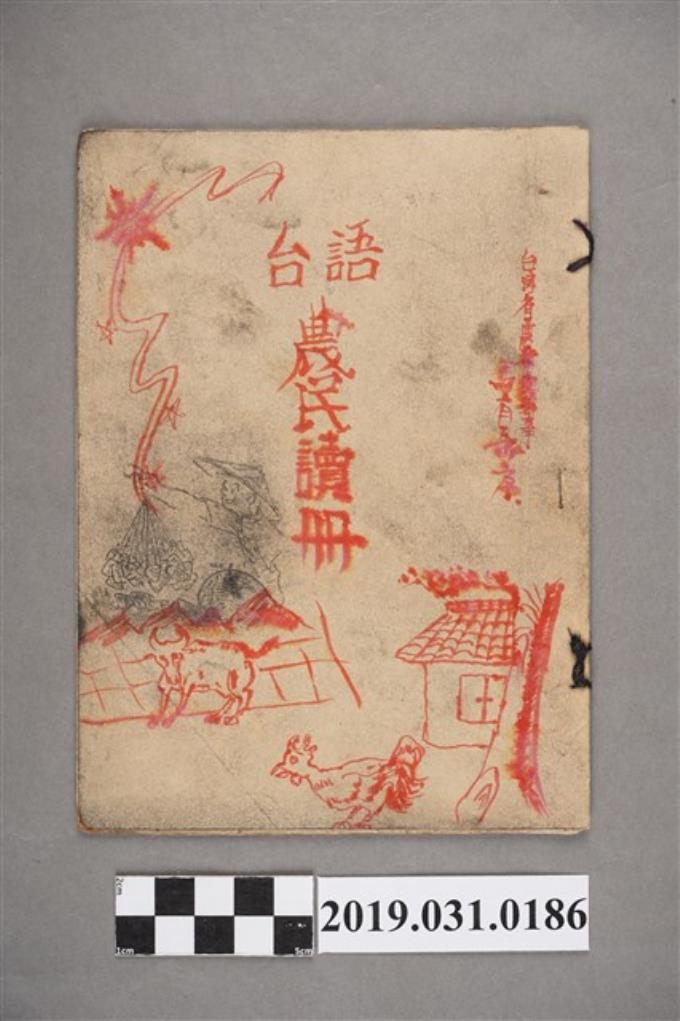 台語
農民讀冊
台灣省農會
2cm
1cm
5cm
2019.031.0186